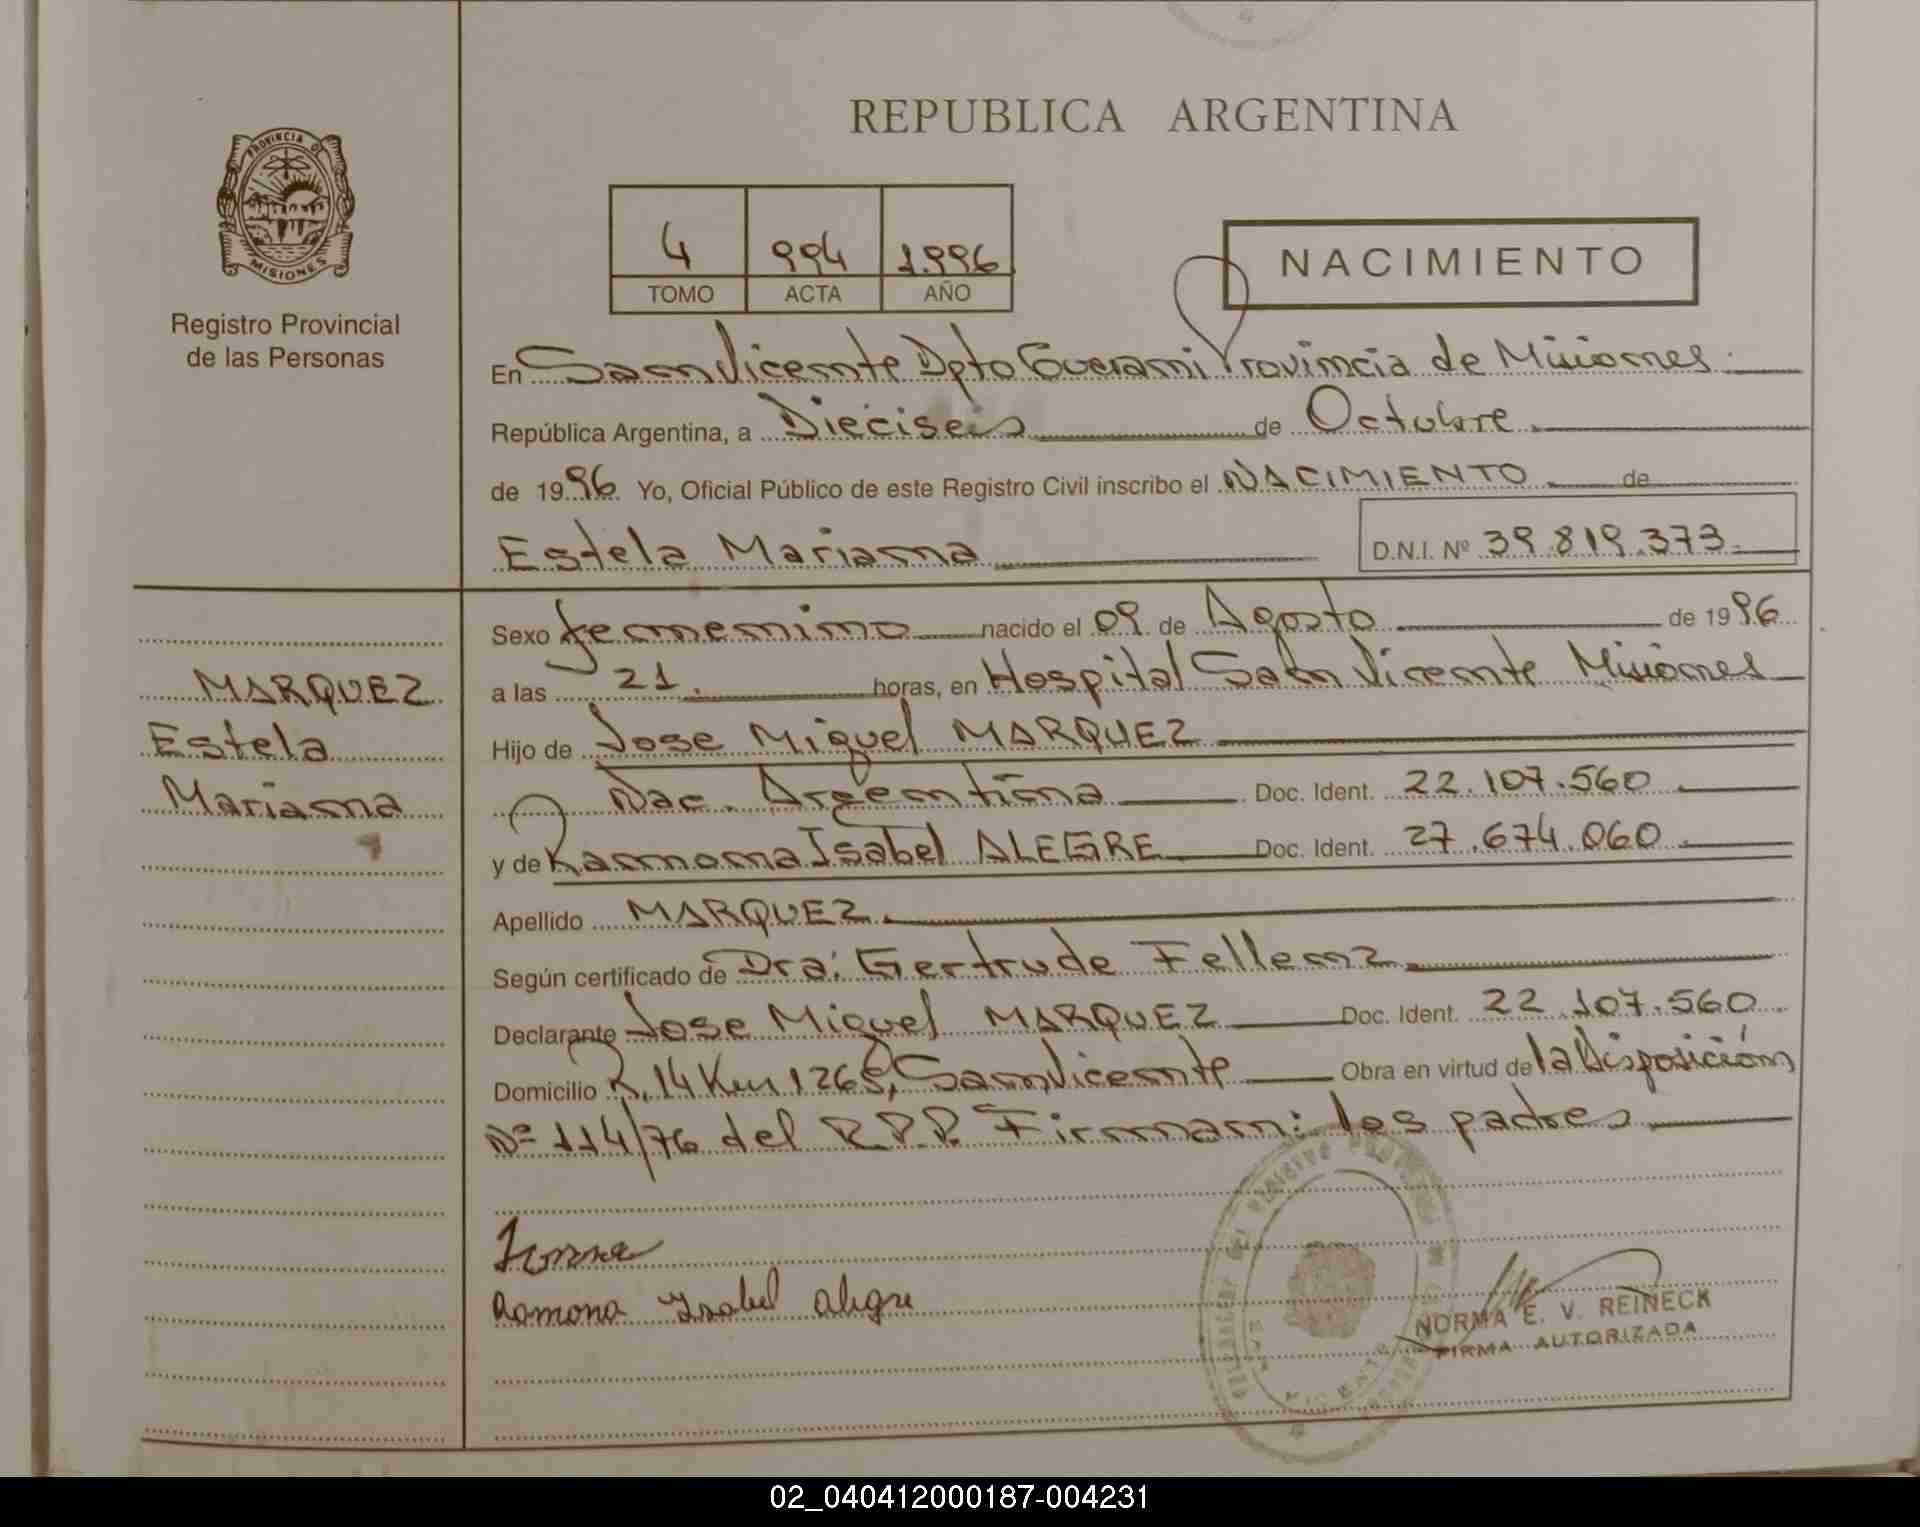 PROVINCIA D
MISIONES
Registro Provincial
de las Personas
REPUBLICA ARGENTINA
4 994 1.996
TOMO ACTA AÑO
NACIMIENTO
En San Vicente Dpto Guarani Provincia de Misiones.
República Argentina, a Dieciseis de Octubre
de 1996 Yo, Oficial Público de este Registro Civil inscribo el NACIMIENTO de
Estela Mariana D.N.I. Nº 39.819.373
MARQUEZ
Estela
Mariana
Sexo femenino nacido el 09 de Agosto de 1996
a las 21. horas, en Hospital San Vicente Misiones
Hijo de Jose Miguel MARQUEZ
Nac. Argentina Doc. Ident. 22.107.560
y de Ramona Isabel ALEGRE Doc. Ident. 27.674.060
Apellido MARQUEZ.
Según certificado de Dra. Gertrude Fellenz
Declarante Jose Miguel MARQUEZ Doc. Ident. 22.107.560
Domicilio R. 14 Km 1268, San Vicente Obra en virtud de la Disposición
Nº 114/76 del R.P.P. Firman: los padres
Ramona Isabel Alegre
NORMA E. V. REINECK
FIRMA AUTORIZADA
02_040412000187-004231